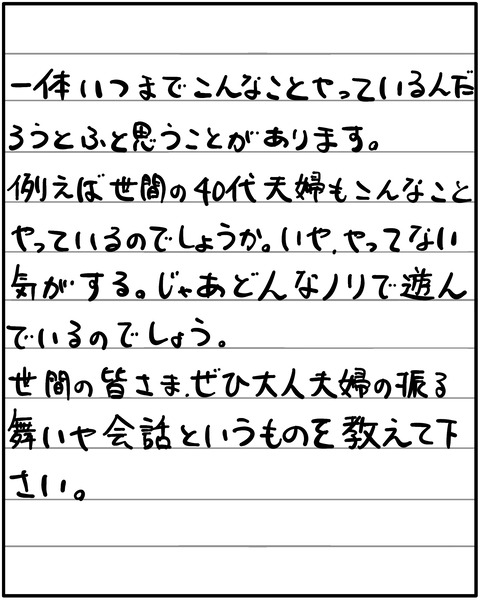 一体いつまでこんなことやっているんだ
ろうとふと思うことがあります。
例えば世間の40代夫婦もこんなこと
やっているのでしょうか。いや、やってない
気がする。じゃあどんなノリで遊ん
でいるのでしょう。
世間の皆さま、ぜひ大人夫婦の振る
舞いや会話というものを教えて下
さい。